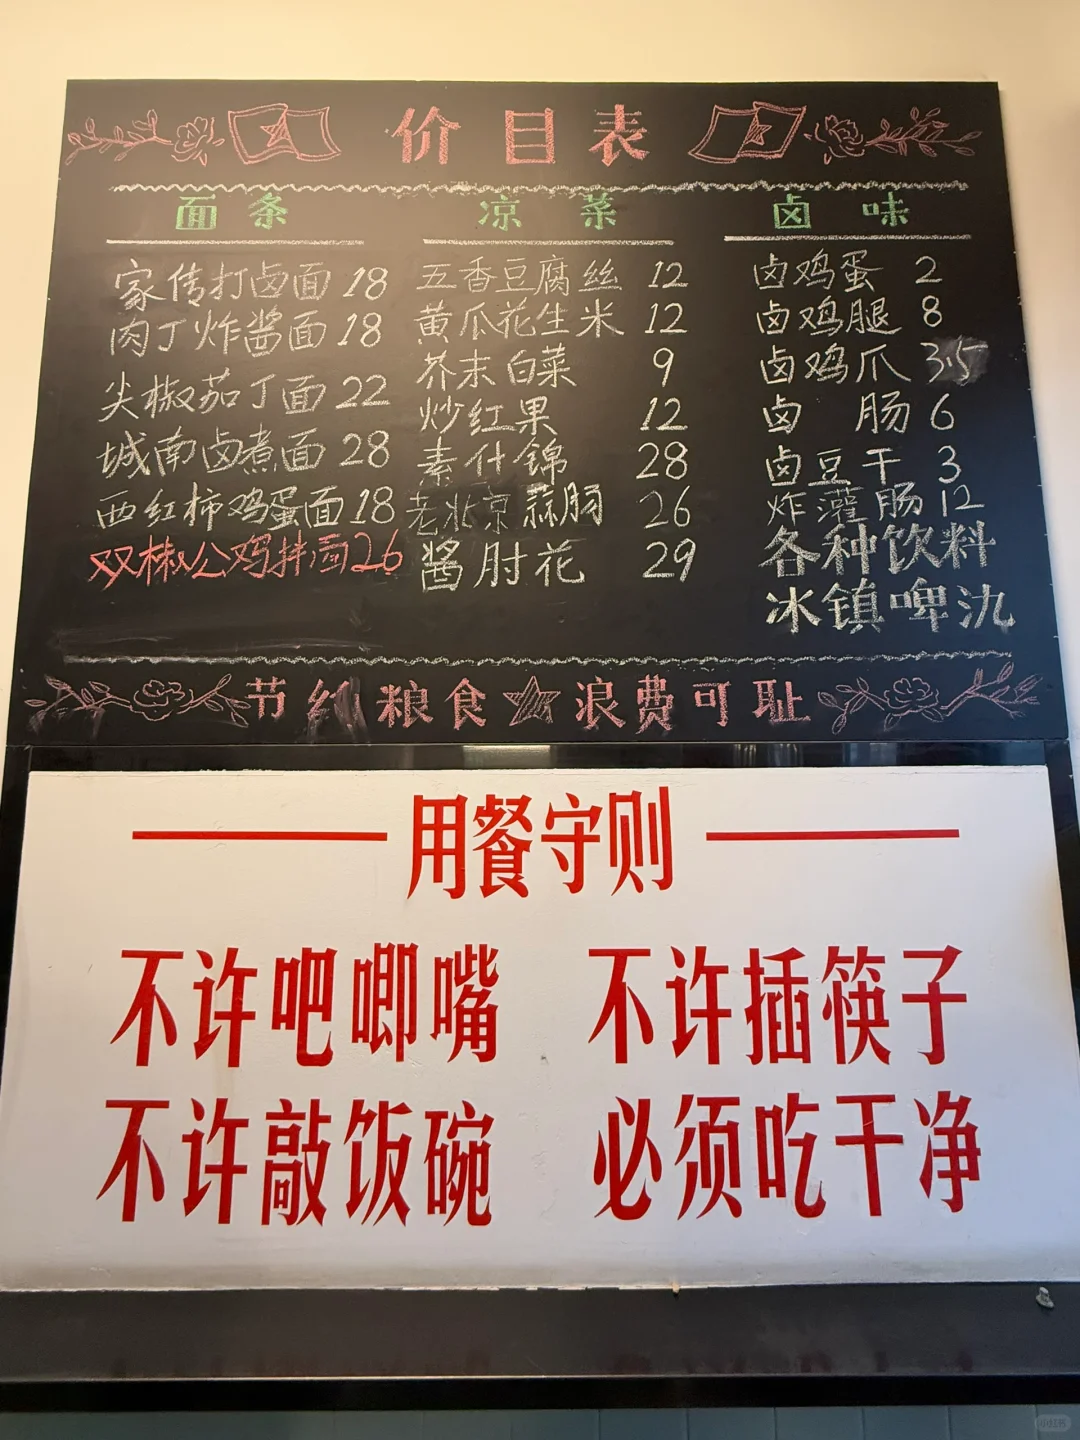 价目表
面条
家传打卤面 18
肉丁炸酱面 18
尖椒茄丁面 22
城南卤煮面 28
西红柿鸡蛋面 18
双椒公鸡拌面 26
凉菜
五香豆腐丝 12
黄瓜花生米 12
芥末白菜 9
炒红果 12
素什锦 28
老北京蒜肠 26
酱肘花 29
卤味
卤鸡蛋 2
卤鸡腿 8
卤鸡爪 3.5
卤肠 6
卤豆干 3
炸灌肠 12
各种饮料
冰镇啤氿
节约粮食 浪费可耻
用餐守则
不许吧唧嘴 不许插筷子
不许敲饭碗 必须吃干净
小红书